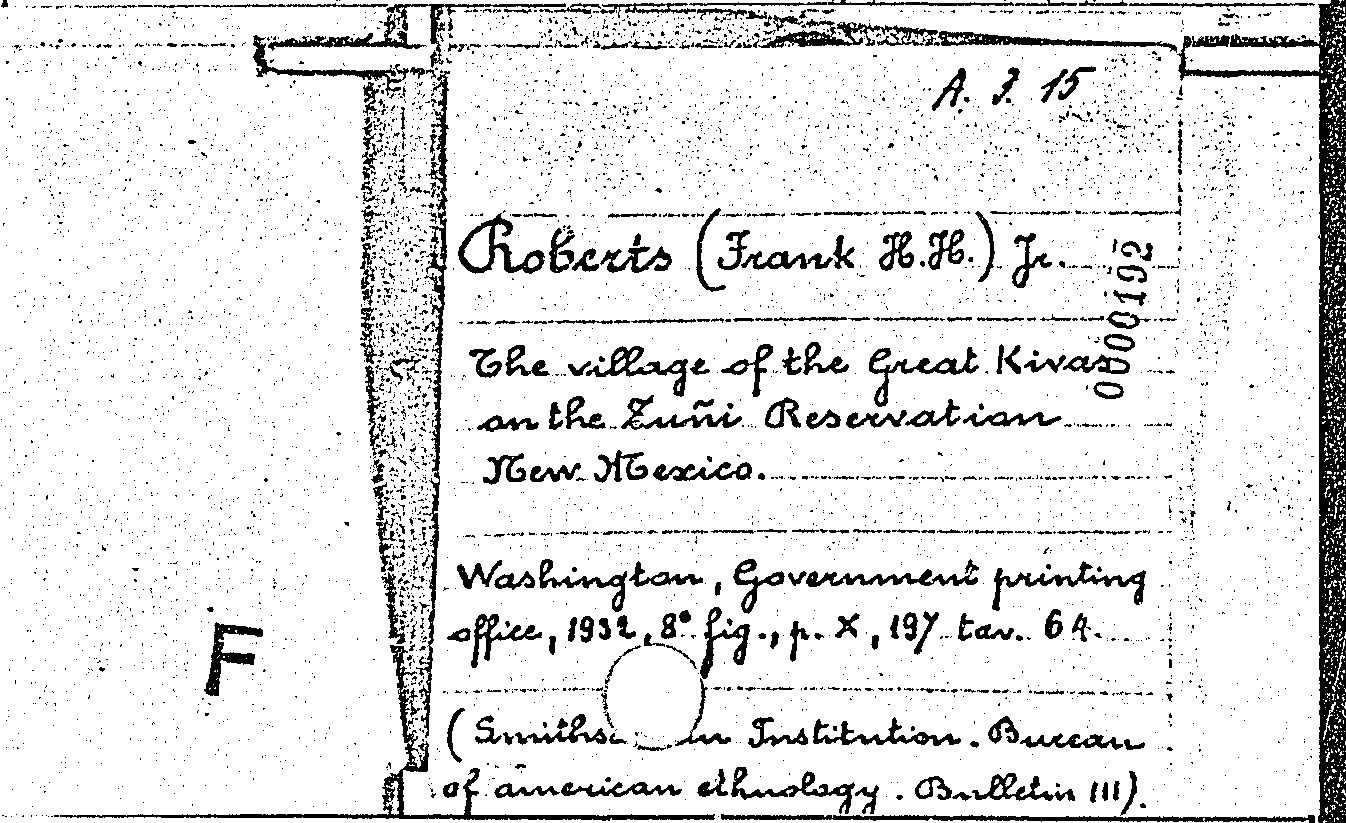 A. 3. 15
Roberts (Frank H.H.) Jr.
0000192
The village of the Great Kivas
on the Zuñi Reservation
New Mexico.
Washington, Government printing
office, 1932, 8° fig., p. X, 197 tav. 64.
F
(Smiths an Institution. Bureau
of american ethnology. Bulletin 111).